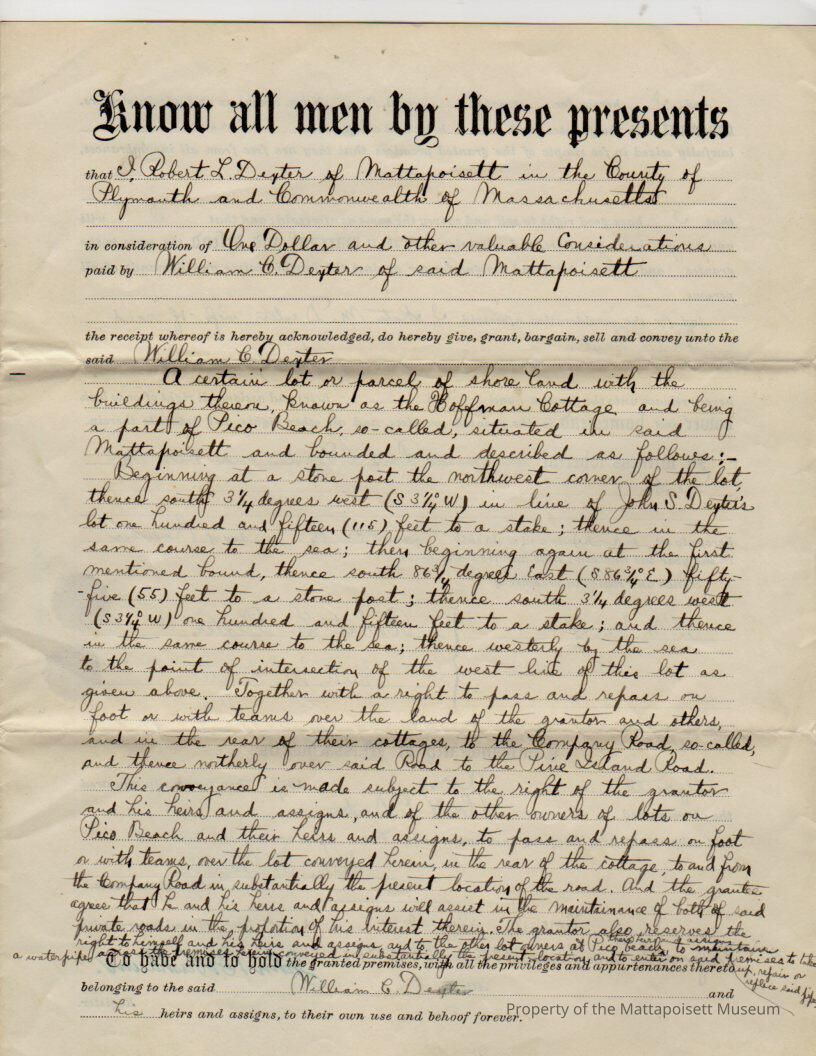 Know all men by these presents
that I, Robert L. Dexter of Mattapoisett in the County of
Plymouth and Commonwealth of Massachusetts
in consideration of One Dollar and other valuable Considerations
paid by William C. Dexter of said Mattapoisett
the receipt whereof is hereby acknowledged, do hereby give, grant, bargain, sell and convey unto the
said William C. Dexter
A certain lot or parcel of shore land with the
buildings thereon, known as the Hoffman Cottage and being
a part of Pico Beach, so-called, situated in said
Mattapoisett and bounded and described as follows:-
Beginning at a stone post the northwest corner of the lot,
thence south 3 1/4 degrees west (S 3 1/4° W) in line of John S. Dexter's
lot one hundred and fifteen (115) feet to a stake; thence in the
same course to the sea; then beginning again at the first
mentioned bound, thence south 86 3/4 degrees East (S 86 3/4° E) fifty-
-five (55) feet to a stone post; thence south 3 1/4 degrees west
(S 3 1/4° W) one hundred and fifteen feet to a stake; and thence
in the same course to the sea; thence westerly by the sea
to the point of intersection of the west line of this lot as
given above. Together with a right to pass and repass on
foot or with teams over the land of the grantor and others,
and in the rear of their cottages, to the Company Road, so-called,
and thence northerly over said Road to the Pine Island Road.
This conveyance is made subject to the right of the grantor
and his heirs and assigns, and of the other owners of lots on
Pico Beach and their heirs and assigns, to pass and repass on foot
or with teams, over the lot conveyed herein, in the rear of the cottage, to and from
the Company Road in substantially the present location of the road. And the grantee
agree that he and his heirs and assigns will assist in the maintainance of both of said
private roads in the proportion of his interest therein. The grantor also reserves the
right to himself and his heirs and assigns, and to the other lot owners at Pico beach, their heirs and assigns, to maintain
a water pipe across the premises herein conveyed in substantially the present location, and to enter on said premises to take
up, repair or
replace said pipe
To have and to hold the granted premises, with all the privileges and appurtenances thereto
belonging to the said William C. Dexter and
his heirs and assigns, to their own use and behoof forever.
Property of the Mattapoisett Museum